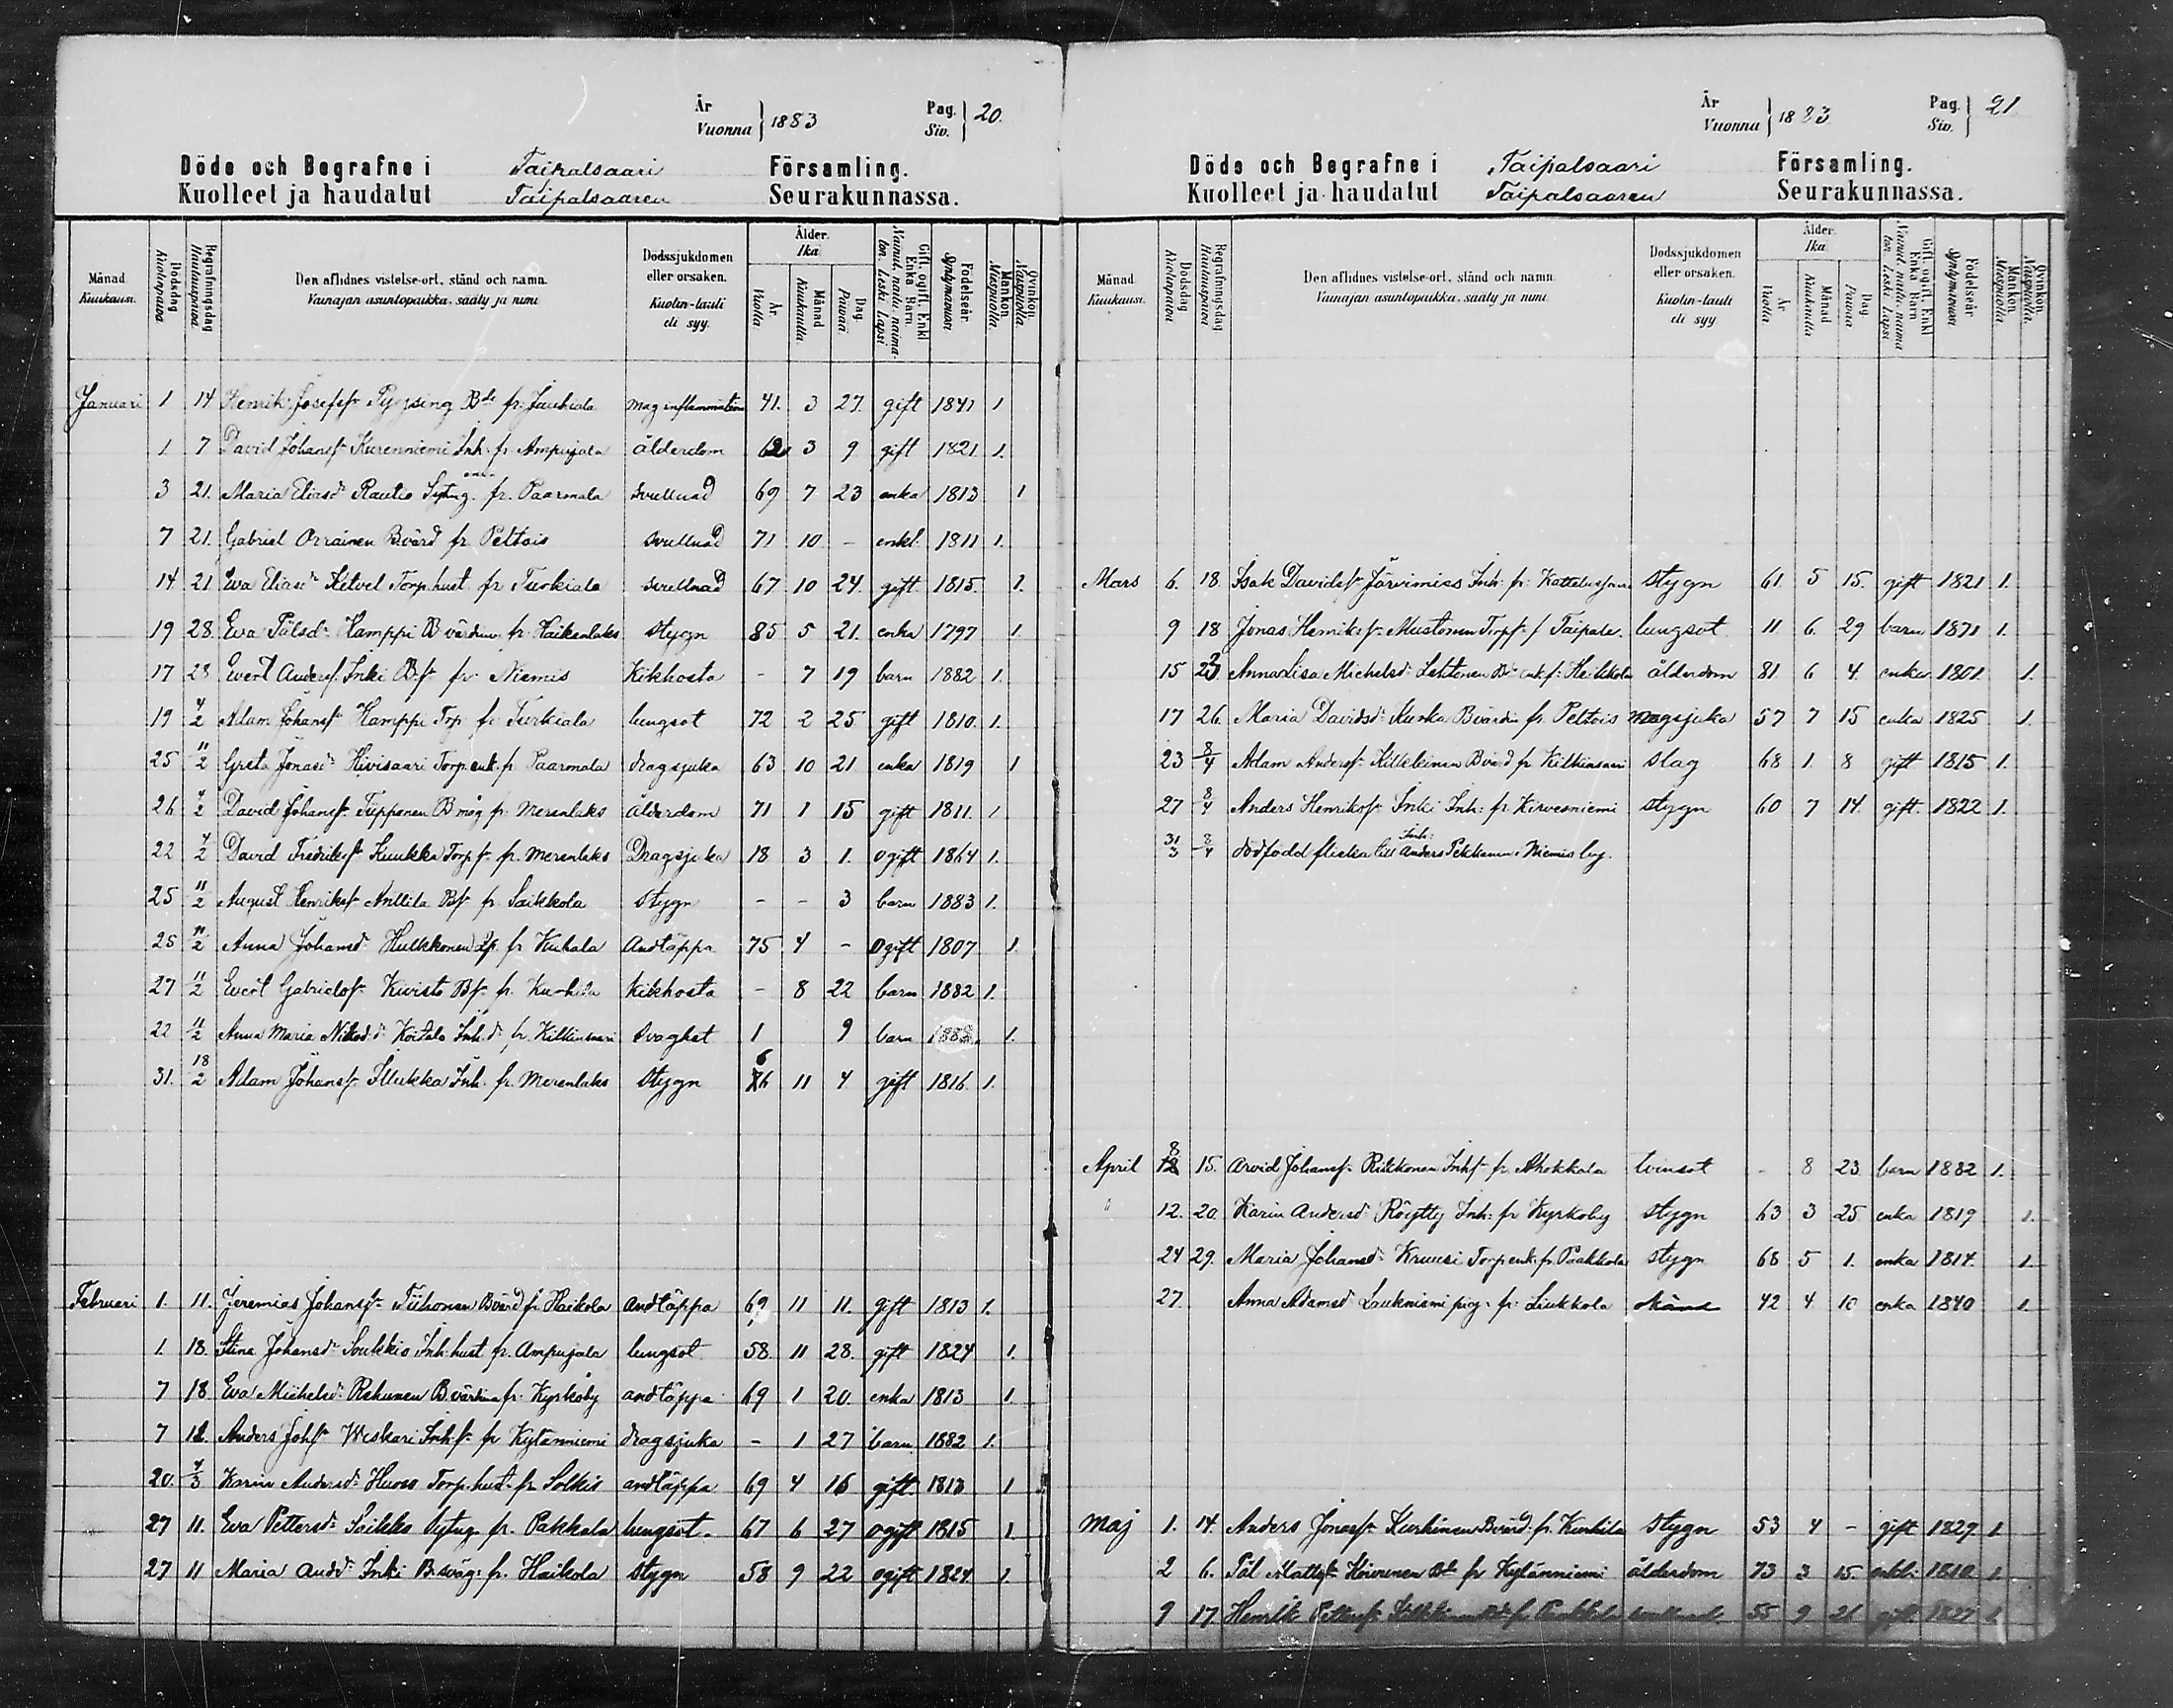 År
Vuonna } 1883
Pag.
Siv. } 20.
Döde och Begrafne i Taipalsaari Församling.
Kuolleet ja haudatut Taipalsaaren Seurakunnassa.
Månad Kuukausi.
Dödsdag Kuolinpäivä
Begrafningsdag Hautauspäivä
Den aflidnes vistelse-ort, stånd och namn.
Vainajan asuntopaikka, sääty ja nimi
Dödssjukdomen eller orsaken.
Kuolin-tauti eli syy.
Ålder. Ikä
År Vuotta
Månad Kuukautta
Dag Päivää
Gift, ogift, Enkl Enka Barn.
Nainut, naitu, naimaton, Leski, Lapsi
Födelseår. Syntymävuosi
Mankön Miespuolia
Qvinkön Naispuolia
Januari 1 14 Henrik Josefss. Pyysing Bde fr. Jauhiala mag inflammation 41. 3 27. gift 1841 1
1. 7 David Johanss. Kurenniemi Inh. fr. Ampujala ålderdom 62 3 9 gift 1821. 1.
3 21. Maria Eliasdr Rautio enka fr. Paarmala svullnad 69 7 23 enka 1813 1
7 21. Gabriel Orrainen B.värd fr. Peltois svullnad 71 10 - enkl. 1811 1.
14 21 Eva Eliasdr Ketvel Torp.hust. fr. Turkiala svullnad 67 10 24. gift 1815. 1.
19 28. Eva Pålsdr Hamppi B.värdin. fr. Haikanlaks stygn 85 5 21. enka 1797 1.
17 28 Evert Anderss. Inki Bss. fr. Niemis Kikhosta - 7 19 barn 1882 1.
19 4/2 Adam Johanss. Hamppi Trp. fr. Turkiala lungsot 72 2 25 gift 1810. 1.
25 11/2 Greta Jonasdr Hivisaari Torp.enk. fr. Paarmala dragsjuka 63 10 21 enka 1819 1
26 4/2 David Johanss. Tiipponen B.måg fr. Merenlaks ålderdom 71 1 15 gift 1811. 1
22 4/2 David Fredrikss. Kuukka Torp.ss. fr. Merenlaks Dragsjuka 18 3 1. ogift 1864 1.
25 11/2 August Henrikss. Anttila Bss. fr. Saikkola stygn - - 3 barn 1883 1.
25 11/2 Anna Johansdr Hulkkonen fr. Kuhala Andtäppa 75 4 - ogift 1807 1.
27 11/2 Evert Gabrielss. Kuvisto Bss. fr. Kurhila kikhosta - 8 22 barn 1882 1.
22 11/2 Anna Maria Koitala Inh.dr fr. Kilkinsaari svaghet 1 9 barn 1882. 1.
31. 18/2 Adam Johanss. Illukka Inh. fr. Merenlaks stygn 66 11 4 gift 1816. 1.
Februari 1. 11. Jeremias Johanss. Tiihonen Bvärd fr. Haikola andtäppa 69 11 11. gift 1813 1.
1. 18. Stina Johansdr Soukkio Inh.hust. fr. Ampujala lungsot 58. 11 28. gift 1824 1.
7 18 Eva Michelsdr Rahunen B.värdina fr. Kyrkoby andtäppa 69 1 20. enka 1813 1.
7 12. Anders Johss. Weskari Inh.ss. fr. Kylänniemi dragsjuka - 1 27 barn 1882 1.
20. 4/3 Karin Andersdr Huoso Torp.hust. fr. Solkis andtäppa 69 4 16 gift. 1813 1
27 11. Eva Pettersdr Saikko fr. Pakkala lungsot. 67 6 27 ogift 1815 1.
27 11 Maria Andrdr Inki B.sväg. fr. Haikola stygn 58 9 22 ogift 1824. 1.
År
Vuonna } 1883
Pag.
Siv. } 21
Döde och Begrafne i Taipalsaari Församling.
Kuolleet ja haudatut Taipalsaaren Seurakunnassa.
Månad Kuukausi.
Dödsdag Kuolinpäivä
Begrafningsdag Hautauspäivä
Den aflidnes vistelse-ort, stånd och namn.
Vainajan asuntopaikka, sääty ja nimi
Dödssjukdomen eller orsaken.
Kuolin-tauti eli syy
Ålder. Ikä
År Vuotta
Månad Kuukautta
Dag Päivää
Gift, ogift, Enkl Enka Barn
Nainut, naitu, naimaton, Leski, Lapsi
Födelseår Syntymävuosi
Mankön Miespuolia
Qvinkön Naispuolia.
Mars 6. 18. Isak Davidss. Järvimies Inh. fr. stygn 61 5 15. gift 1821 1.
9 18 Jonas Henrikss. Mustonen Torp.ss. f. Taipale. lungsot 11 6. 29 barn 1871 1.
15 23. Anna Lisa Michelsdr Lehtonen f. Heikkola ålderdom 81. 6 4. enka 1801 1.
17 26. Maria Davidsdr Kurka Bvärdin. fr. Peltois magsjuka 57 7 15 enka 1825 1.
23 8/4 Adam Anderss. Kilkkinen Bvärd fr. Kilkinsaari slag 68 1. 8 gift 1815 1.
27 8/4 Anders Henrikss. Inki Inh. fr. Kirvesniemi stygn 60 7 14. gift. 1822 1.
31/3 8/4 dödfödd flicka till Inh. Anders Pekkanen i Niemis by.
April 8 15. Arvid Johanss. Riikkonen Inh.ss. fr. Ahokkala tvinsot - 8 23 barn 1882 1.
" 12. 20. Karin Andersdr Röytty Inh. fr. Kyrkoby stygn 63 3 25 enka 1819 1.
24 29. Maria Johansdr Kruusi Torp.enk. fr. Paakkola stygn 68 5 1. enka 1814. 1.
27. Anna Adamsdr Laukniemi pig. fr. Liukkola okänd 42 4 10 enka 1840 1.
Maj 1. 14. Anders Jonass. Kurhinen Bvärd. fr. Kurhila stygn 53 4 - gift 1829 1
2 6. Pål Mattss. Hoivunen Bde fr. Kylänniemi ålderdom 73 3 15. enkl. 1810 1
9 17 Henrik Petterss. fr. 55 9 21 gift 1827 1